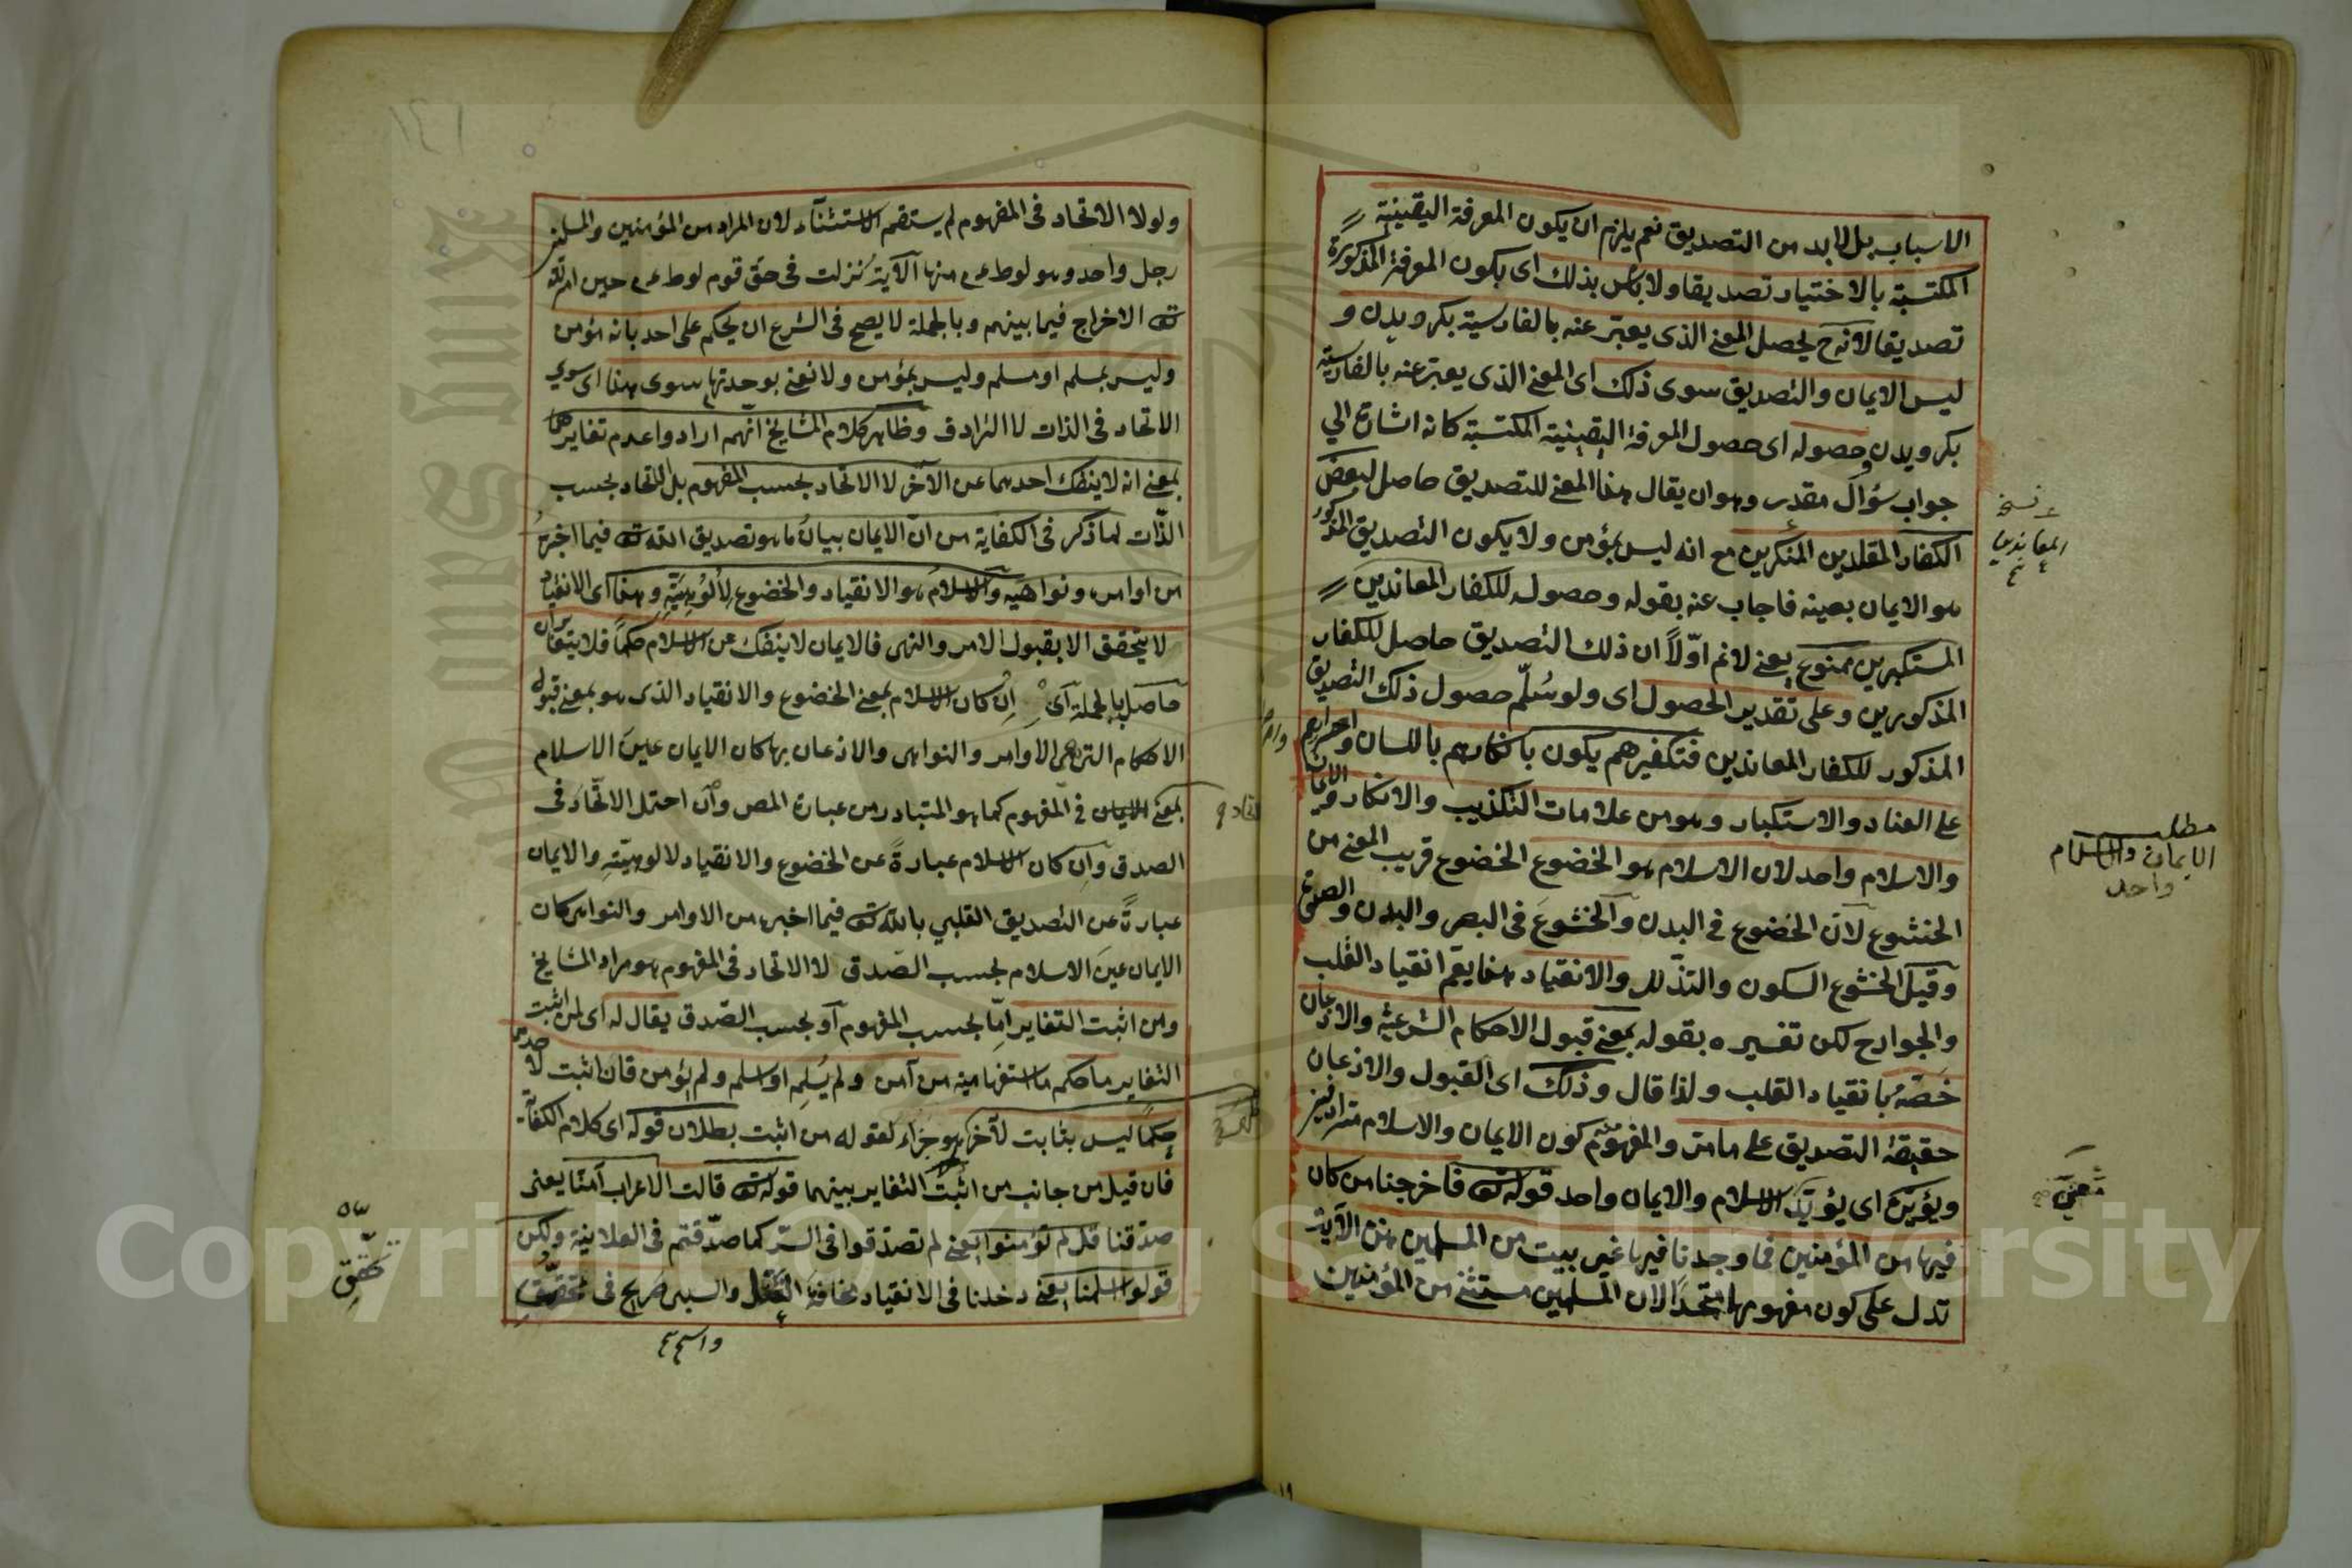 الاسباب بل لابد من التصديق نعم يلزم ان يكون المعرفة اليقينية
المكتسبة بالاختيار تصديقا ولا بأس بذلك اى بكون المعرفة المذكورة
تصديقا لانه ح يحصل المعنى الذى يعبر عنه بالفارسية بكرويدن و
ليس الايمان والتصديق سوى ذلك اى المعنى الذى يعبر عنه بالفارسية
بكرويدن وحصوله اى حصول المعرفة اليقينية المكتسبة كانه اشارة الي
جواب سؤال مقدر وهو ان يقال هذا المعنى للتصديق حاصل لبعض
الكفار المقلدين المنكرين مع انه ليس بمؤمن ولا يكون التصديق المذكور
هو الايمان بعينه فاجاب عنه بقوله وحصوله للكفار المعاندين
المستكبرين ممنوع يعنى لانم اوّلاً ان ذلك التصديق حاصل للكفار
المذكورين وعلى تقدير الحصول اى ولو سُلّم حصول ذلك التصديق
المذكور للكفار المعاندين فتكفيرهم يكون بانكارهم باللسان واصرارهم
على العناد والاستكبار وهو من علامات التكذيب والانكار والايمان
والاسلام واحد لان الاسلام هو الخضوع الخضوع قريب المعنى من
الخشوع لان الخضوع فى البدن والخشوع فى البصر والبدن والصوت
وقيل الخشوع السكون والتذلل والانقياد هذا يعم انقياد القلب
والجوارح لكن تفسيره بقوله بمعنى قبول الاحكام الشرعية والاذعان
خصّه بانقياد القلب ولذا قال وذلك اى القبول والاذعان
حقيقة التصديق على ما مر والمفهوم كون الايمان والاسلام مترادفين
ويؤيده اى يؤيد الاسلام والايمان واحد قوله تع فاخرجنا من كان
فيها من المؤمنين فما وجدنا فيها غير بيت من المسلمين هذه الآية
تدل على كون مفهومها متحدا لان المسلمين مستثنى من المؤمنين
نسخ
المعاندين
مطلب
الايمان والاسلام
واحد
ولولا الاتحاد فى المفهوم لم يستقم الاستثناء لان المراد من المؤمنين والمسلمين
رجل واحد وهو لوط عم منها الآية نزلت فى حق قوم لوط عم حين امر الله
تع الاخراج فيما بينهم وبالجملة لا يصح فى الشرع ان يحكم على احد بانه مؤمن
وليس بمسلم او مسلم وليس بمؤمن ولا نعنى بوحدتهما سوى هذا اى سوي
الاتحاد فى الذات لا الترادف وظاهر كلام المشايخ انهم ارادوا عدم تغايرهما
بمعنى انه لا ينفك احدهما عن الآخر لا الاتحاد بحسب المفهوم بل الاتحاد بحسب
الذّات لما ذكر فى الكفاية من انّ الايمان بيان ما هو تصديق الله تع فيما اخبر
من اوامره ونواهيه والاسلام هو الانقياد والخضوع لألوُهيّتِهِ وهذا اى الانقياد
لا يتحقق الا بقبول الامر والنهى فالايمان لا ينفك عن الاسلام حكماً فلا يتغايران
حاصل بالجملة اى ان كان الاسلام بمعنى الخضوع والانقياد الذى هو بمعنى قبول
الاحكام التى هى الاوامر والنواهى والاذعان بها كان الايمان عين الاسلام
بمعنى الايمان فى المفهوم كما هو المتبادر من عبارة المص وان احتمل الاتّحاد فى
الصدق وان كان الاسلام عبارةً عن الخضوع والانقياد لالوهيّتهِ والايمان
عبارةً عن التصديق القلبي بالله تع فيما اخبر من الاوامر والنواهى كان
الايمان عين الاسلام بحسب الصّدق لا الاتحاد فى المفهوم هو مراد المشايخ
ومن اثبت التغاير امّا بحسب المفهوم او بحسب الصّدق يقال له اى لمن اثبت
التغاير ما حكم ما استفهامية من آمن ولم يُسلِم او اسلم ولم يؤمن فان اثبت لاحدهما
حكماً ليس بثابت لآخر هو جزاء لقوله من اثبت بطلان قوله اى كلام الكفاية
فان قيل من جانب من اثبت التغاير بينهما قوله تع قالت الاعراب آمنّا يعنى
صدّقنا قل لم تؤمنوا يعنى لم تصدّقوا فى السّر كما صدّقتم فى العلانية ولكن
قولوا اسلمنا يعنى دخلنا فى الانقياد مخافة القتل والسبى صريح فى تحقق